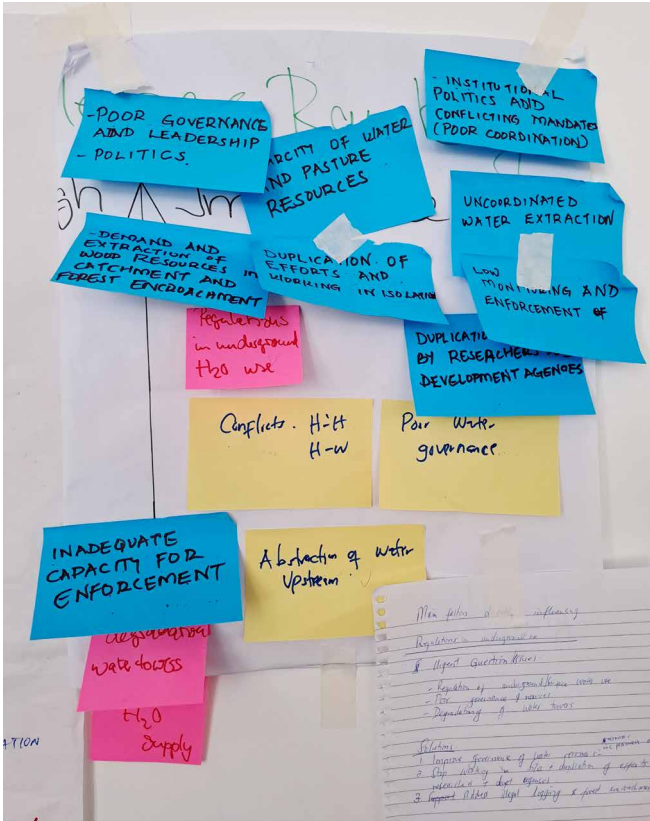 - POOR GOVERNANCE
AND LEADERSHIP
- POLITICS.
- INSTITUTIONAL
POLITICS AND
CONFLICTING MANDATES
(POOR COORDINATION)
ARCITY OF WATER
AND PASTURE
RESOURCES
UNCOORDINATED
WATER EXTRACTION
- DEMAND AND
EXTRACTION OF
WOOD RESOURCES IN
CATCHMENT AND
FOREST ENCROACHMENT
DUPLICATION OF
EFFORTS AND
WORKING IN ISOLATION
LOW
MONITORING AND
ENFORCEMENT OF
Regulations
in underground
H2O use
DUPLICATIO
BY RESEACHERS
DEVELOPMENT AGENCIES
Conflicts. H-H
H-W
Poor Water
governance
INADEQUATE
CAPACITY FOR
ENFORCEMENT
Abstraction of Water
Upstream.
degradation
water towers
H2O
Supply
ATION
Main factors influencing
Regulations in underground
Urgent Question
- Regulation of underground water use
- Poor governance
- Degradation of water towers
Solutions
1. Improve governance of
2. Stop working in + duplication of efforts
3. Address illegal logging &